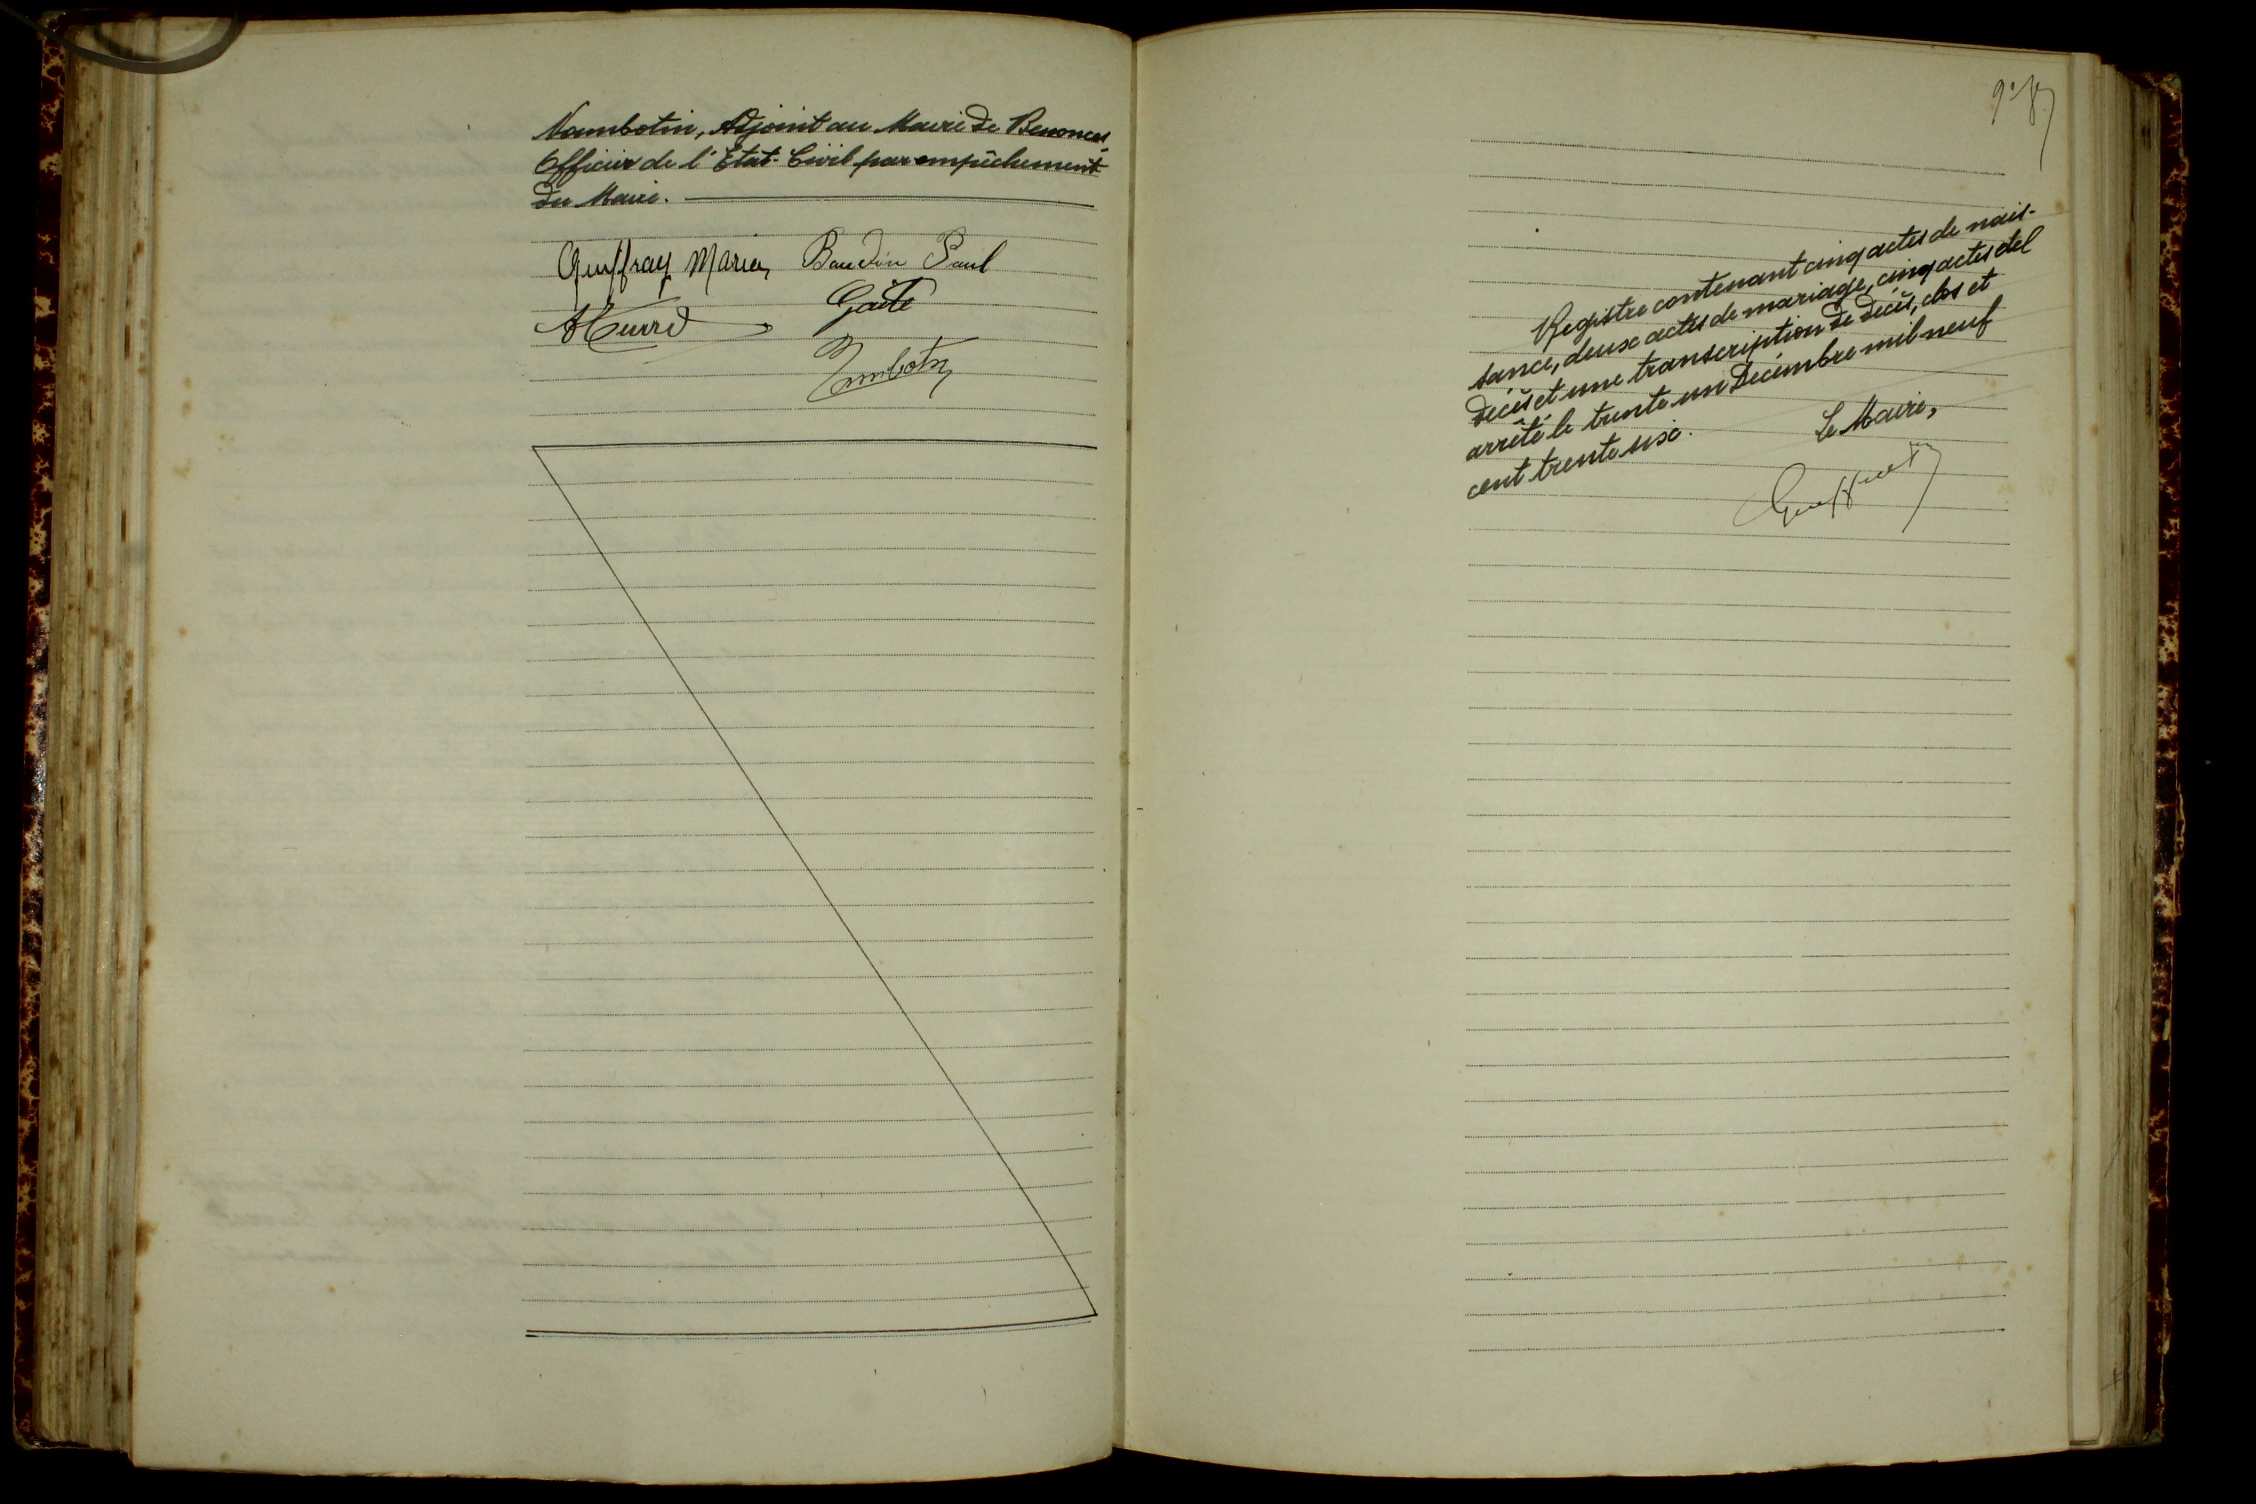 Nambotin, Adjoint au Maire de Benonces,
Officier de l'Etat-Civil par empêchement
du Maire.
Guffray Maria Baudin Paul
Gaité
Registre contenant cinq actes de nais-
sance, deux actes de mariage, cinq actes de
décès et une transcription de décès, clos et
arrêté le trente un Décembre mil neuf
cent trente six.
Le Maire,